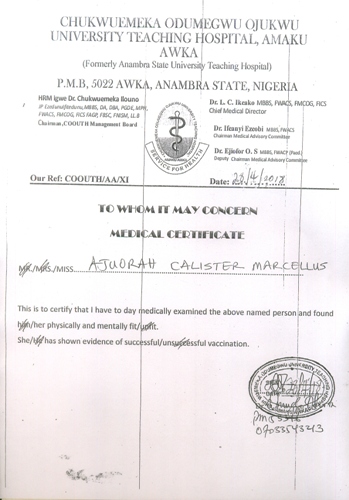 CHUKWUEMEKA ODUMEGWU OJUKWU
UNIVERSITY TEACHING HOSPITAL, AMAKU
AWKA
(Formerly Anambra State University Teaching Hospital)
P.M.B, 5022 AWKA, ANAMBRA STATE, NIGERIA
HRM Igwe Dr. Chukwuemeka Ilouno
Chairman, COOUTH Management Board
Dr. L. C. Ikeako MBBS, FWACS, FMCOG, FICS
Chief Medical Director
Dr. Ifeanyi Ezeobi MBBS, FWACS
Chairman Medical Advisory Committee
Dr. Ejiofor O. S MBBS, FWACP (Paed.)
Deputy Chairman Medical Advisory Committee
SERVICE FOR HEALTH
Our Ref: COOUTH/AA/XI
Date: 28/4/2018
TO WHOM IT MAY CONCERN
MEDICAL CERTIFICATE
MR./MRS./MISS. AJUORAH CALISTER MARCELLUS
This is to certify that I have to day medically examined the above named person and found
him/her physically and mentally fit/unfit.
She/He has shown evidence of successful/unsuccessful vaccination.